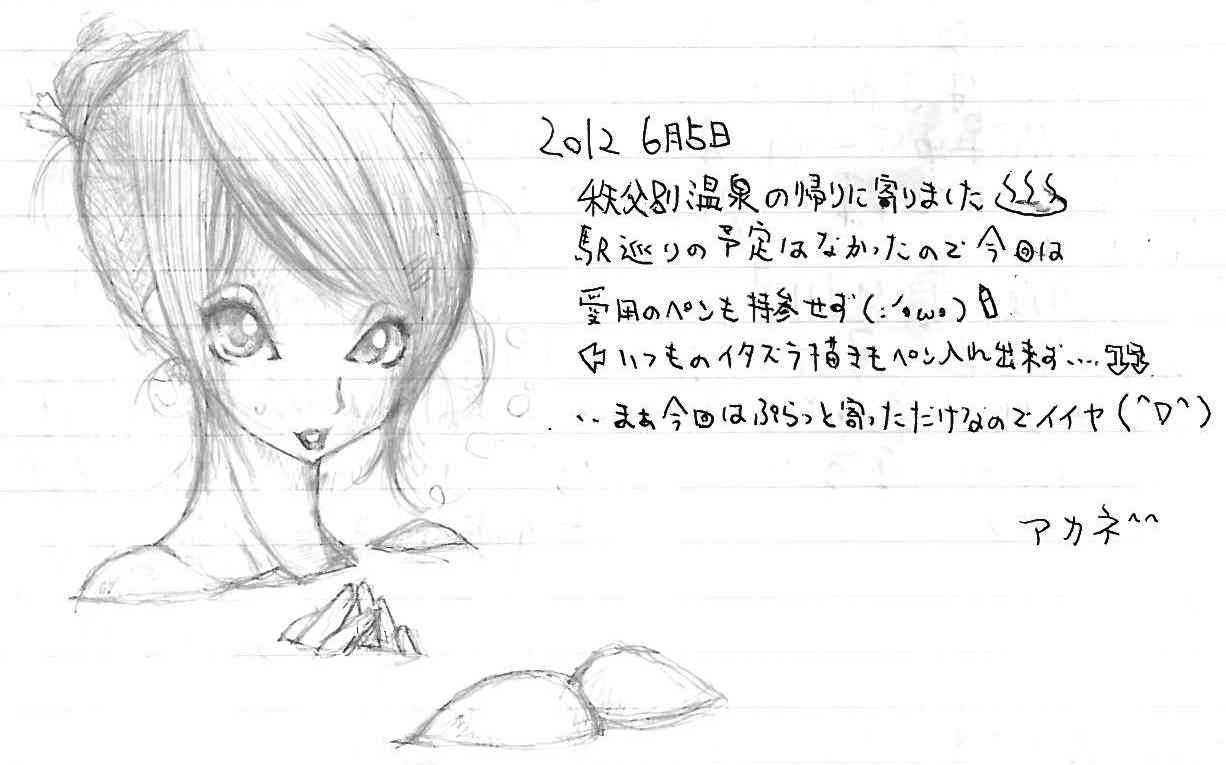 2012 6月5日
秩父別温泉の帰りに寄りました
駅巡りの予定はなかったので今回は
愛用のペンも持参せず(;´•ω•)
いつものイタズラ描きもペン入れ出来ず....
..まぁ今回はぷらっと寄っただけなのでイイヤ(^D^)
アカネ^^